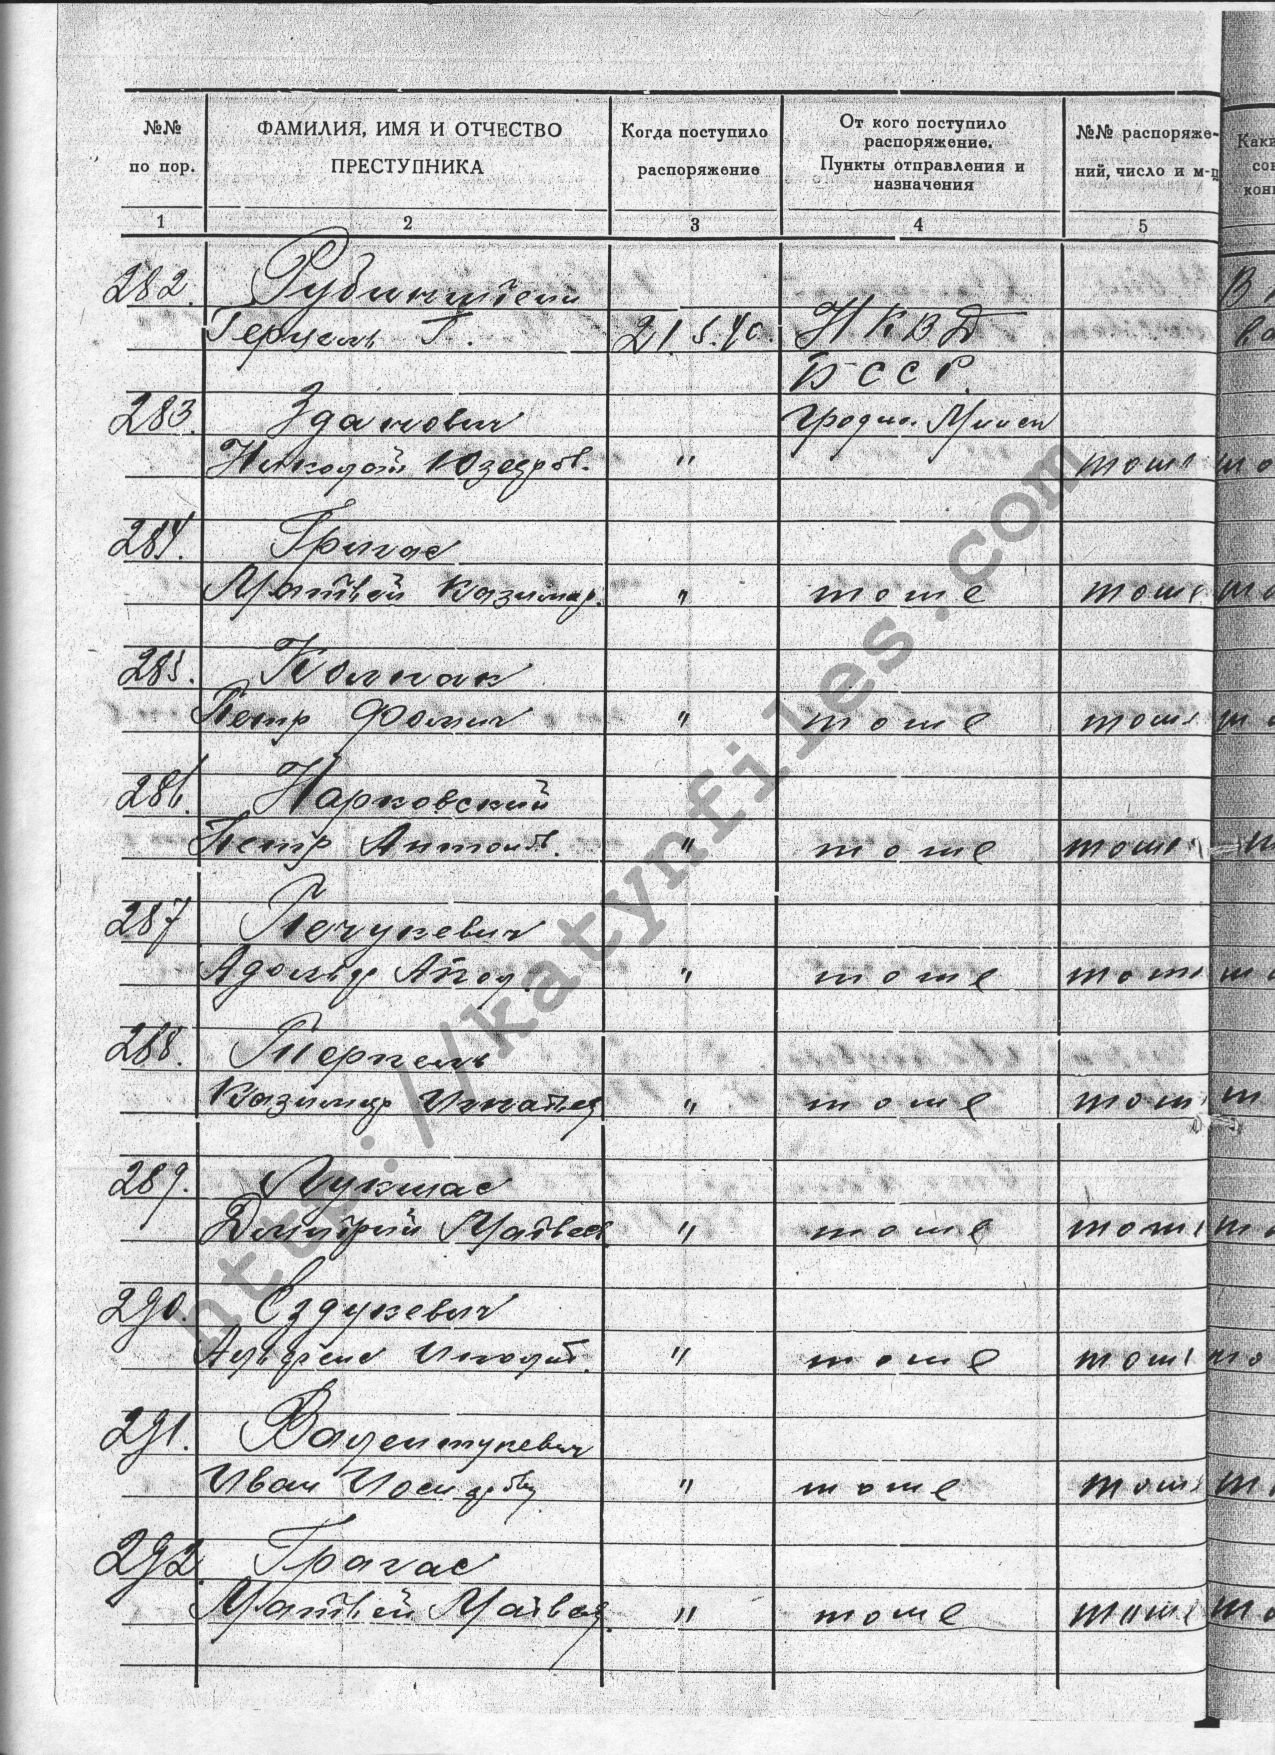 №№ по пор.
ФАМИЛИЯ, ИМЯ И ОТЧЕСТВО ПРЕСТУПНИКА
Когда поступило распоряжение
От кого поступило распоряжение. Пункты отправления и назначения
№№ распоряже-ний, число и м-ц
1 2 3 4 5
282. Рубинштейн
Гершель Г. 21.5.40. НКВД
БССР.
283. Зданович Гродн. Минск
Николай Юзефов. " тоже
284. Григас
Матвей Казимир. " тоже тоже
285. Колпак
Петр Фомич " тоже тоже
286. Нарковский
Петр Антонов. " тоже тоже
287 Печукевич
Адольф " тоже тоже
288. Терпель
Казимир Игнатьев " тоже тоже
289. Лукшас
Дмитрий Матвеев " тоже тоже
290. Ездукевич
" тоже тоже
291. Валентукевич
Иван Иосифов " тоже тоже
292. Грагас
Матвей Матвеев. " тоже тоже
http://katynfiles.com